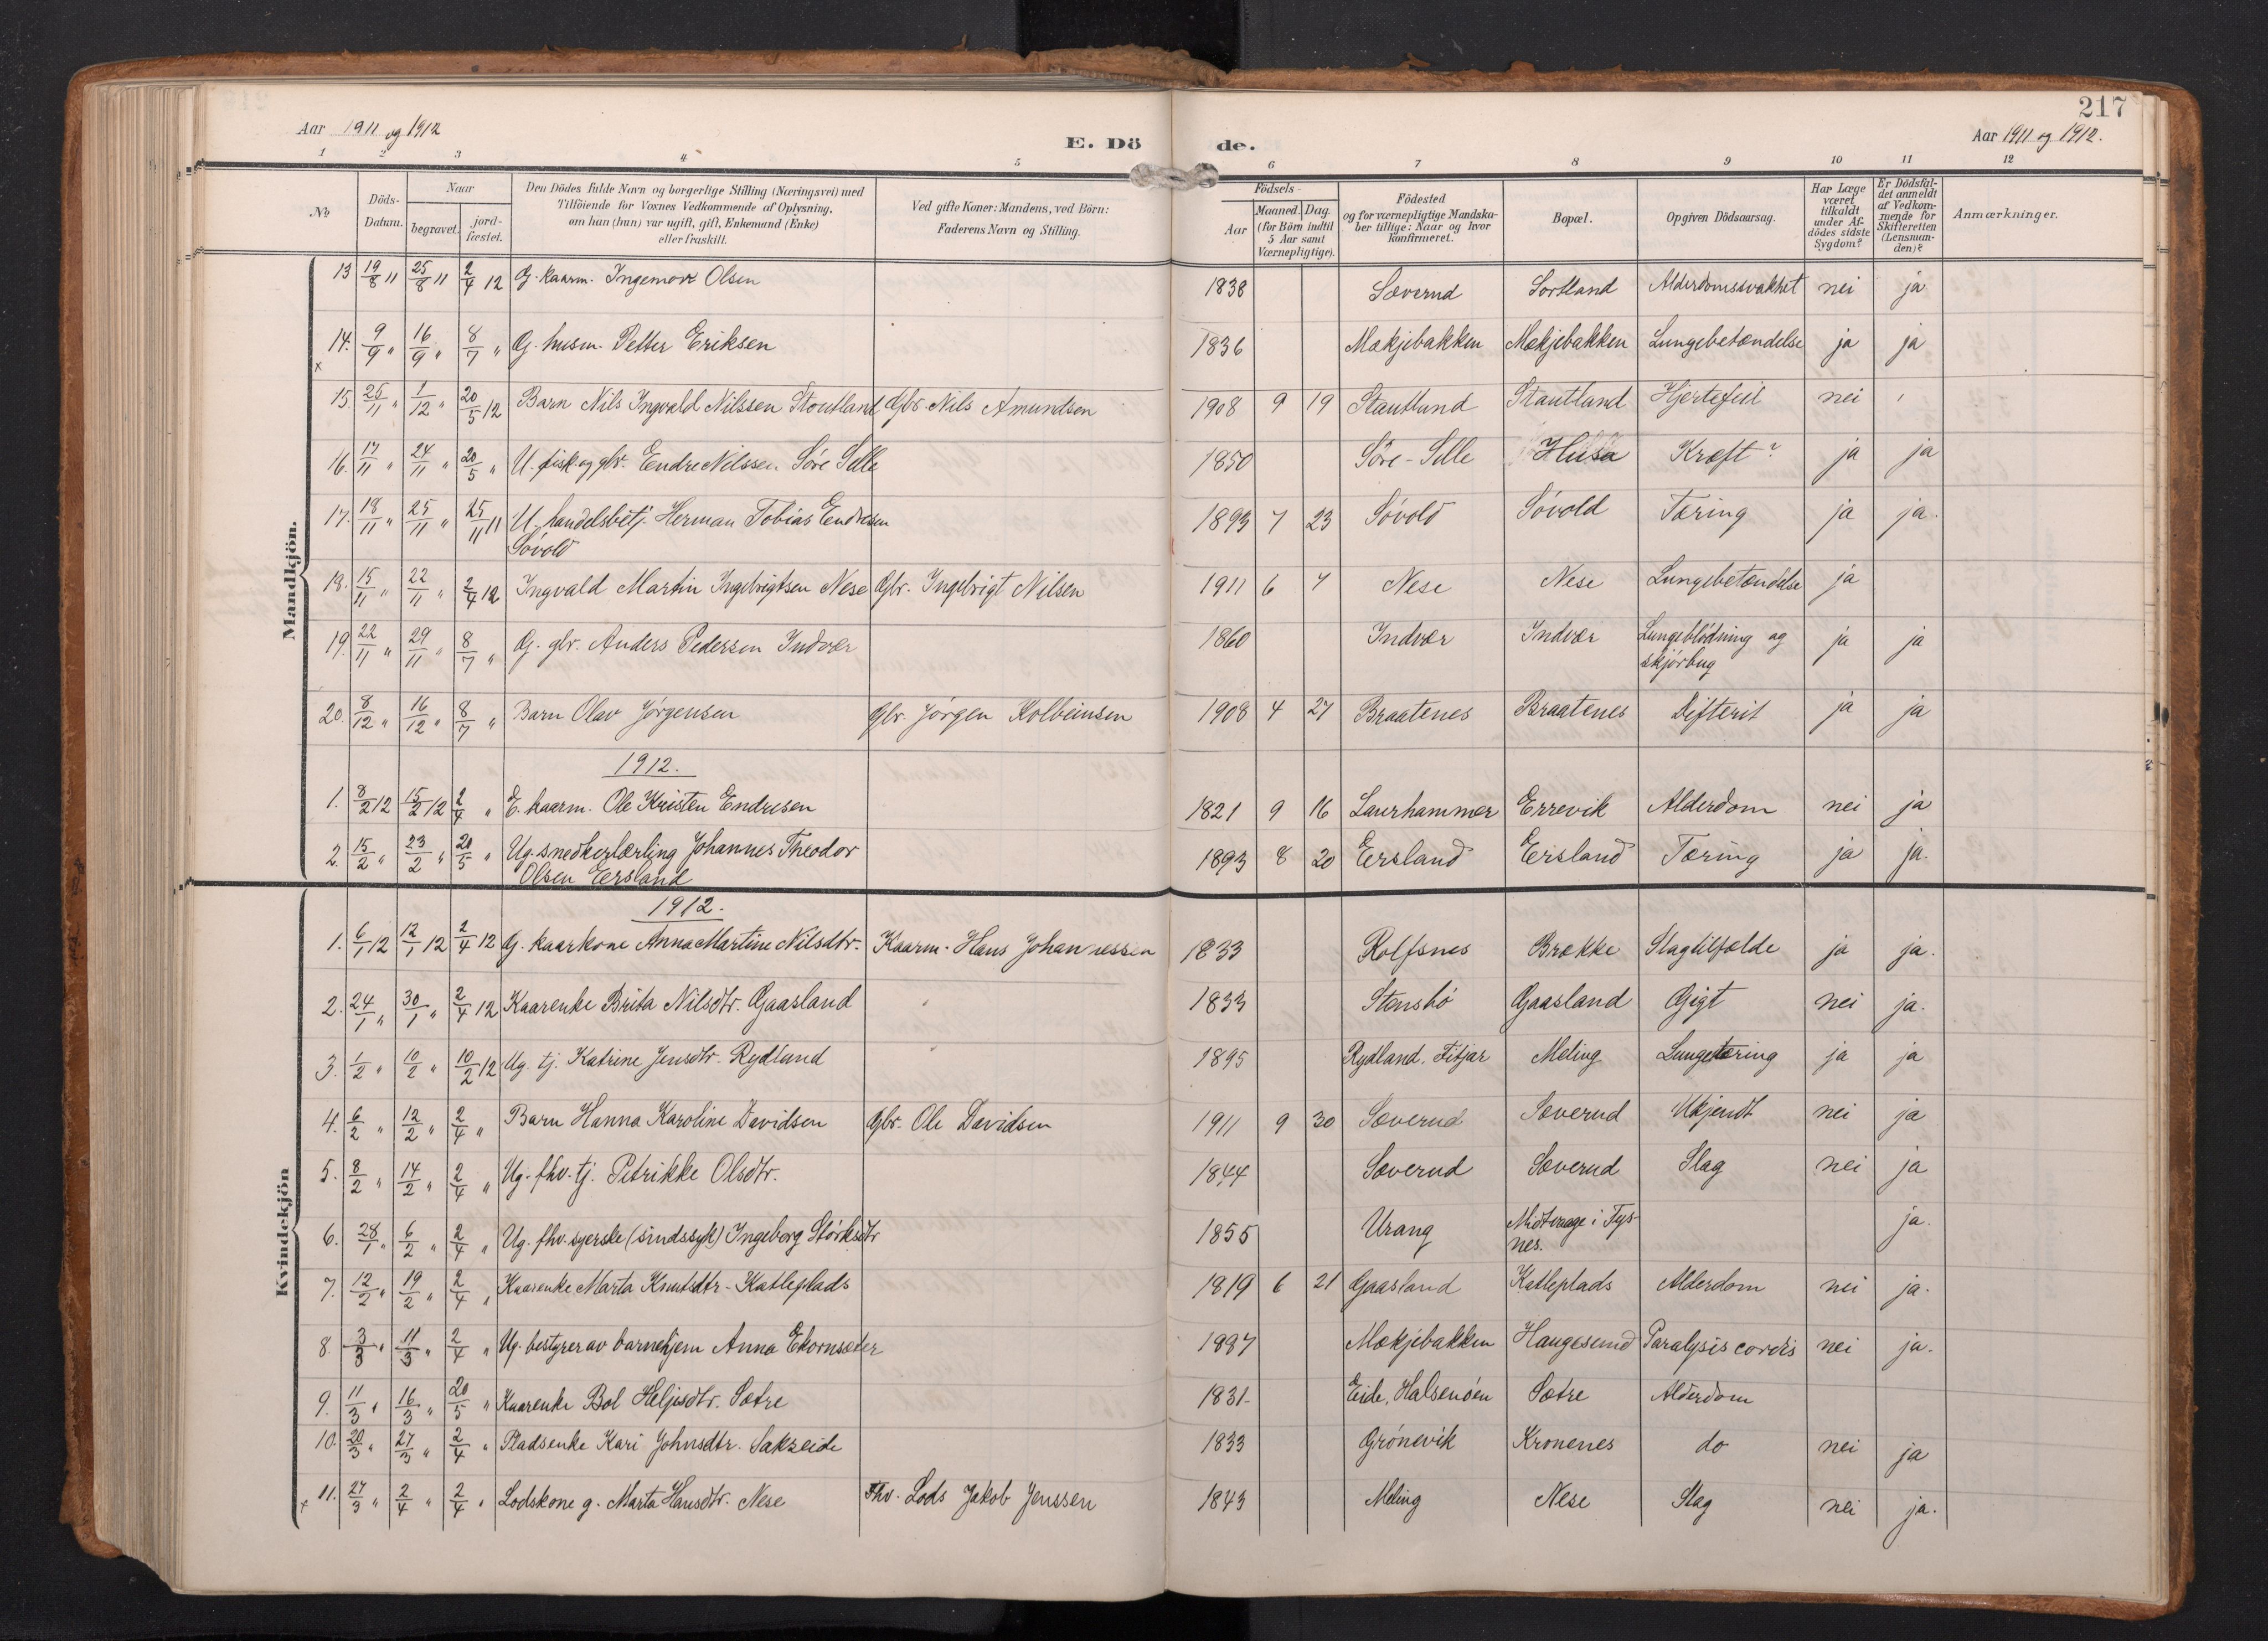 217
Aar 1911 og 1912
E. Dö de.
Aar 1911 og 1912.
1 2 3 4 5 6 7 8 9 10 11 12
No
Döds-Datum.
Naar
begravet.
jord-fæstet.
Den Dödes fulde Navn og borgerlige Stilling (Næringsvei) med
Tilföiende for Voxnes Vedkommende af Oplysning,
om han (hun) var ugift, gift, Enkemand (Enke)
eller fraskilt.
Ved gifte Koner: Mandens, ved Börn:
Faderens Navn og Stilling.
Födsels-
Aar
Maaned. Dag.
(for Börn indtil
5 Aar samt
Værnepligtige).
Födested
og for værnepligtige Mandska-
ber tillige: Naar og hvor
konfirmeret.
Bopæl.
Opgiven Dödsaarsag.
Har Læge
været
tilkaldt
under Af-
dödes sidste
Sygdom?
Er Dödsfal-
det anmeldt
af Vedkom-
mende for
Skifteretten
(Lensman-
den)?
Anmærkninger.
Mandkjön.
13 19/8 11 25/8 11 2/4 12 G. kaarm. Ingemor Olsen 1838 Sæverud Sortland Alderdomssvakhet nei ja
14. 9/9 " 16/9 " 8/7 " G. husm. Petter Eriksen 1836 Mækjebakken Mækjebakken Lungebetændelse ja ja
x
15. 25/11 " 1/12 " 20/5 12 Barn Nils Ingvald Nilssen Stoutland Gbr. Nils Amundsen 1908 9 19 Stautland Stautland Hjertefeil nei
16. 17/11 " 24/11 " 20/5 " U. fisk. og gbr. Endre Nilssen Söre Selle 1850 Söre-Selle Husa Kræft? ja ja
17. 18/11 " 25/11 " 25/11 11 U. handelsbetj. Herman Tobias Endresen 1893 7 23 Sövold Sövold Tæring ja ja.
Sövold
18. 15/11 " 22/11 " 2/4 12 Ingvald Martin Ingebrigtsen Nese Gbr. Ingebrigt Nilsen 1911 6 7 Nese Nese Lungebetændelse ja
19. 22/11 " 29/11 " 8/7 " G. gbr. Anders Pedersen Indvær 1860 Indvær Indvær Lungeblödning og ja ja
skjörbug
20. 8/12 " 16/12 " 8/7 " Barn Olav Jörgensen Gbr. Jörgen Kolbeinsen 1908 4 27 Braatenes Braatenes Difterit ja ja
1912.
1. 8/2 12 15/2 12 2/4 " E. kaarm. Ole Kristen Endresen 1821 9 16 Laurhammer Errevik Alderdom nei ja
2. 15/2 " 23/2 " 20/5 " Ug. snedkerlærling Johannes Theodor 1893 8 20 Eersland Eersland Tæring ja ja.
Olsen Eersland
Kvindekjön
1912.
1. 6/1 12 12/1 12 2/4 12 G. kaarkone Anna Martine Nilsdtr. Kaarm. Hans Johannessen 1833 Rolfsnes Brække Slagtilfælde ja ja.
2. 24/1 " 30/1 " 2/4 12 Kaarenke Brita Nilsdtr. Gaasland 1833 Stensbö Gaasland Gigt nei ja.
3. 1/2 " 10/2 " 10/2 12 Ug. tj. Katrine Jensdtr. Rydland 1895 Rydland, Fitjar Meling Lungetæring ja ja
4. 6/2 " 12/2 " 2/4 " Barn Hanna Karoline Davidsen Gbr. Ole Davidsen 1911 9 30 Sæverud Sæverud Ukjendt nei ja
5. 8/2 " 14/2 " 2/4 " Ug. fhv. tj. Petrikke Olsdtr. 1844 Sæverud Sæverud Slag nei ja
6. 28/1 " 6/2 " 2/4 " Ug. fhv. syerske (sindssyk) Ingeborg Störksdtr 1855 Urang Midtvaage i Tys- ja.
nes.
7. 12/2 " 19/2 " 2/4 " Kaarenke Marta Knutsdtr. Katleplads 1819 6 21 Gaasland Katleplads Alderdom nei ja.
8. 3/3 " 11/3 " 2/4 " Ug. bestyrer av barnehjem Anna Ekornsæter Mækjebakken Haugesund Paralysis cordis nei ja.
9. 11/3 " 16/3 " 20/5 " Kaarenke Bol Heljesdtr. Sætre 1831. Eide, Halsenöen Sætre Alderdom
10. 20/3 " 27/3 " 2/4 " Pladsenke Kari Johnsdtr. Sakseide 1833 Grönevik Kronenes do nei ja
x 11. 27/3 " 2/4 " 2/4 " Lodskone g. Marta Hansdtr. Nese Fhv. Lods Jakob Jenssen 1843 Meling Nese Slag nei ja.